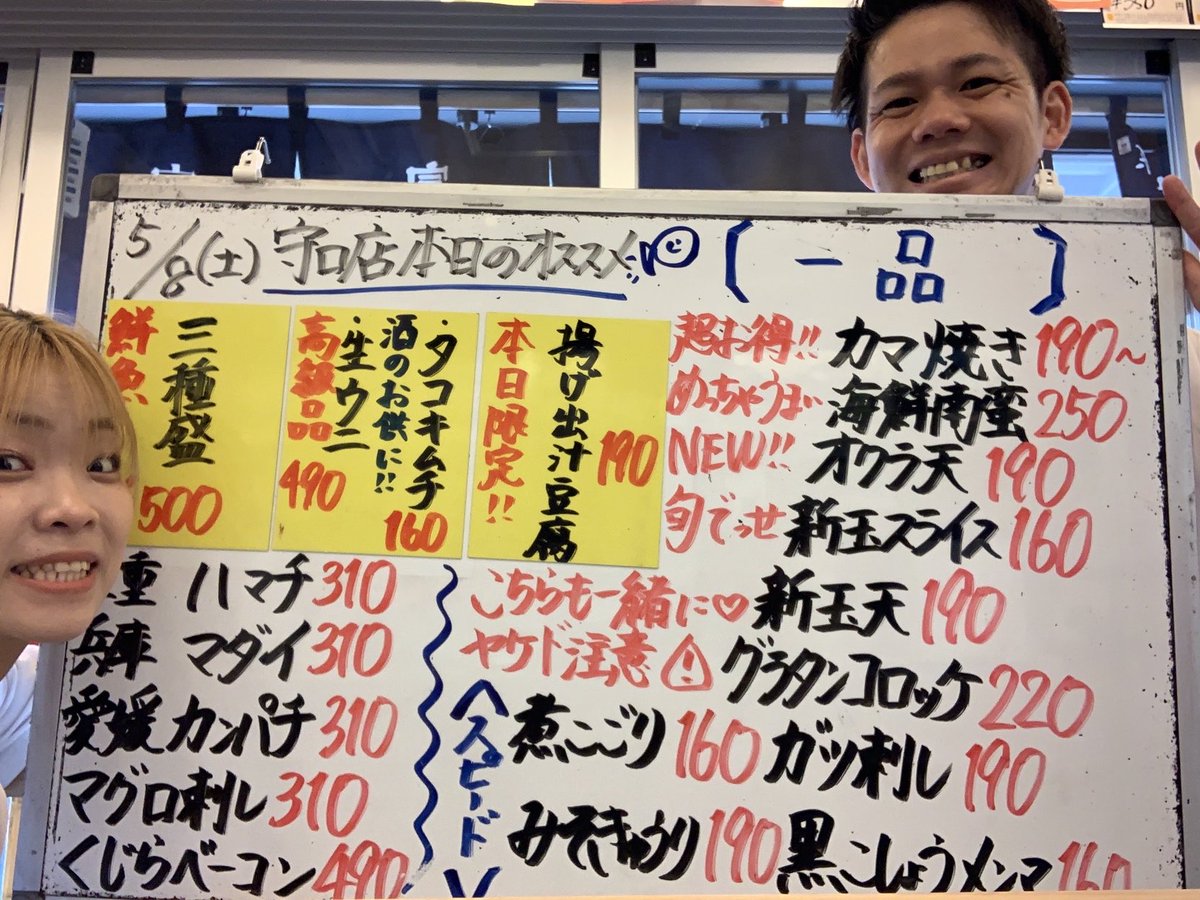 5/8(土)守口店本日のオススメ
〔一品〕
鮮魚
三種盛
500
高級品
・タコキムチ
酒のお供に!!
・生ウニ
490
160
本日限定!!
揚げ出汁豆腐
190
超お得!! カマ焼き 190~
めっちゃうまい 海鮮南蛮 250
NEW!! オクラ天 190
旬でっせ 新玉スライス 160
こちらも一緒に♡ 新玉天 190
ヤケド注意 グラタンコロッケ 220
重 ハマチ 310
兵庫 マダイ 310
愛媛 カンパチ 310
マグロ刺し 310
くじらベーコン 490
<スピード>
煮こごり 160
ガツ刺し 190
みそきゅうり 190
黒こしょうメンマ 160
¥350
円